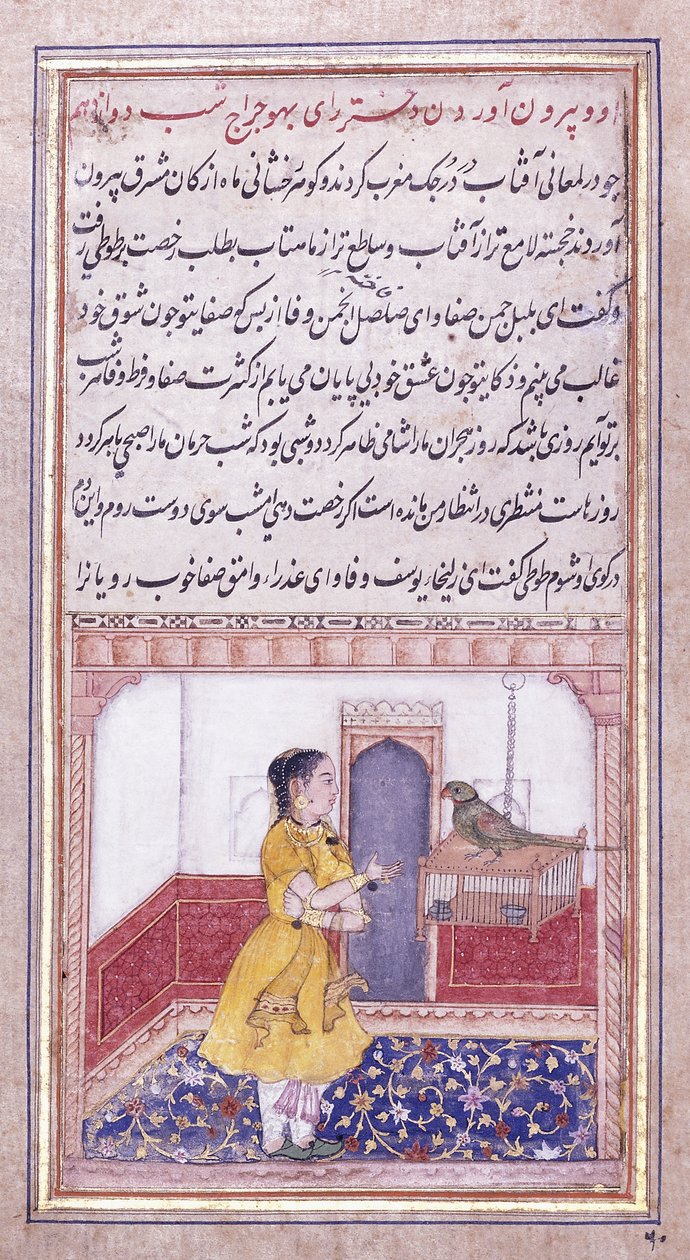 او و بیرون آوردن دختر رای بهوجراج شب دوازدهم
چو در لمعانی آفتاب در درجک مغرب کردند و گوهر خشانی ماه از کان مشرق بیرون
آوردند خجسته لامع تر از آفتاب و ساطع تر از ماهتاب بطلب رخصت بر طوطی رفت
فاخته
و گفت ای بلبل چمن صفا و ای صلصل انجمن وفا از بس که صفایتو چون شوق خود
غالب می بینم و ذکایتو چون عشق خود بی پایان می یابم از کثرت صفا و فرط وفا هر شب
بر تو آیم روزی باشد که روز هجران ما را شامی ظاهر گردد و شبی بود که شب حرمان ما را صبحی باهر گردد
روزهاست منتظری در انتظار من مانده است اگر رخصت دهی امشب سوی دوست روم و این دم
در کوی او شوم طوطی گفت ای زلیخاء یوسف وفا و ای عذراء وامق صفا خوب رویانرا